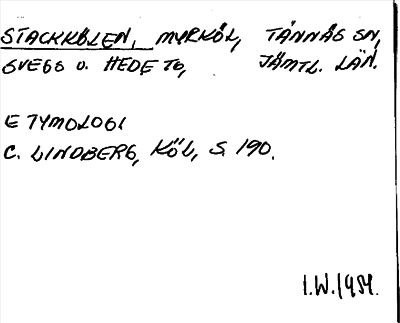 STACKKÖLEN, MYRKÖL, TÄNNÄS SN,
SVEGS O. HEDE TG, JÄMTL. LÄN.
ETYMOLOGI
C. LINDBERG, KÖL, S. 190.
I.W. 1959.